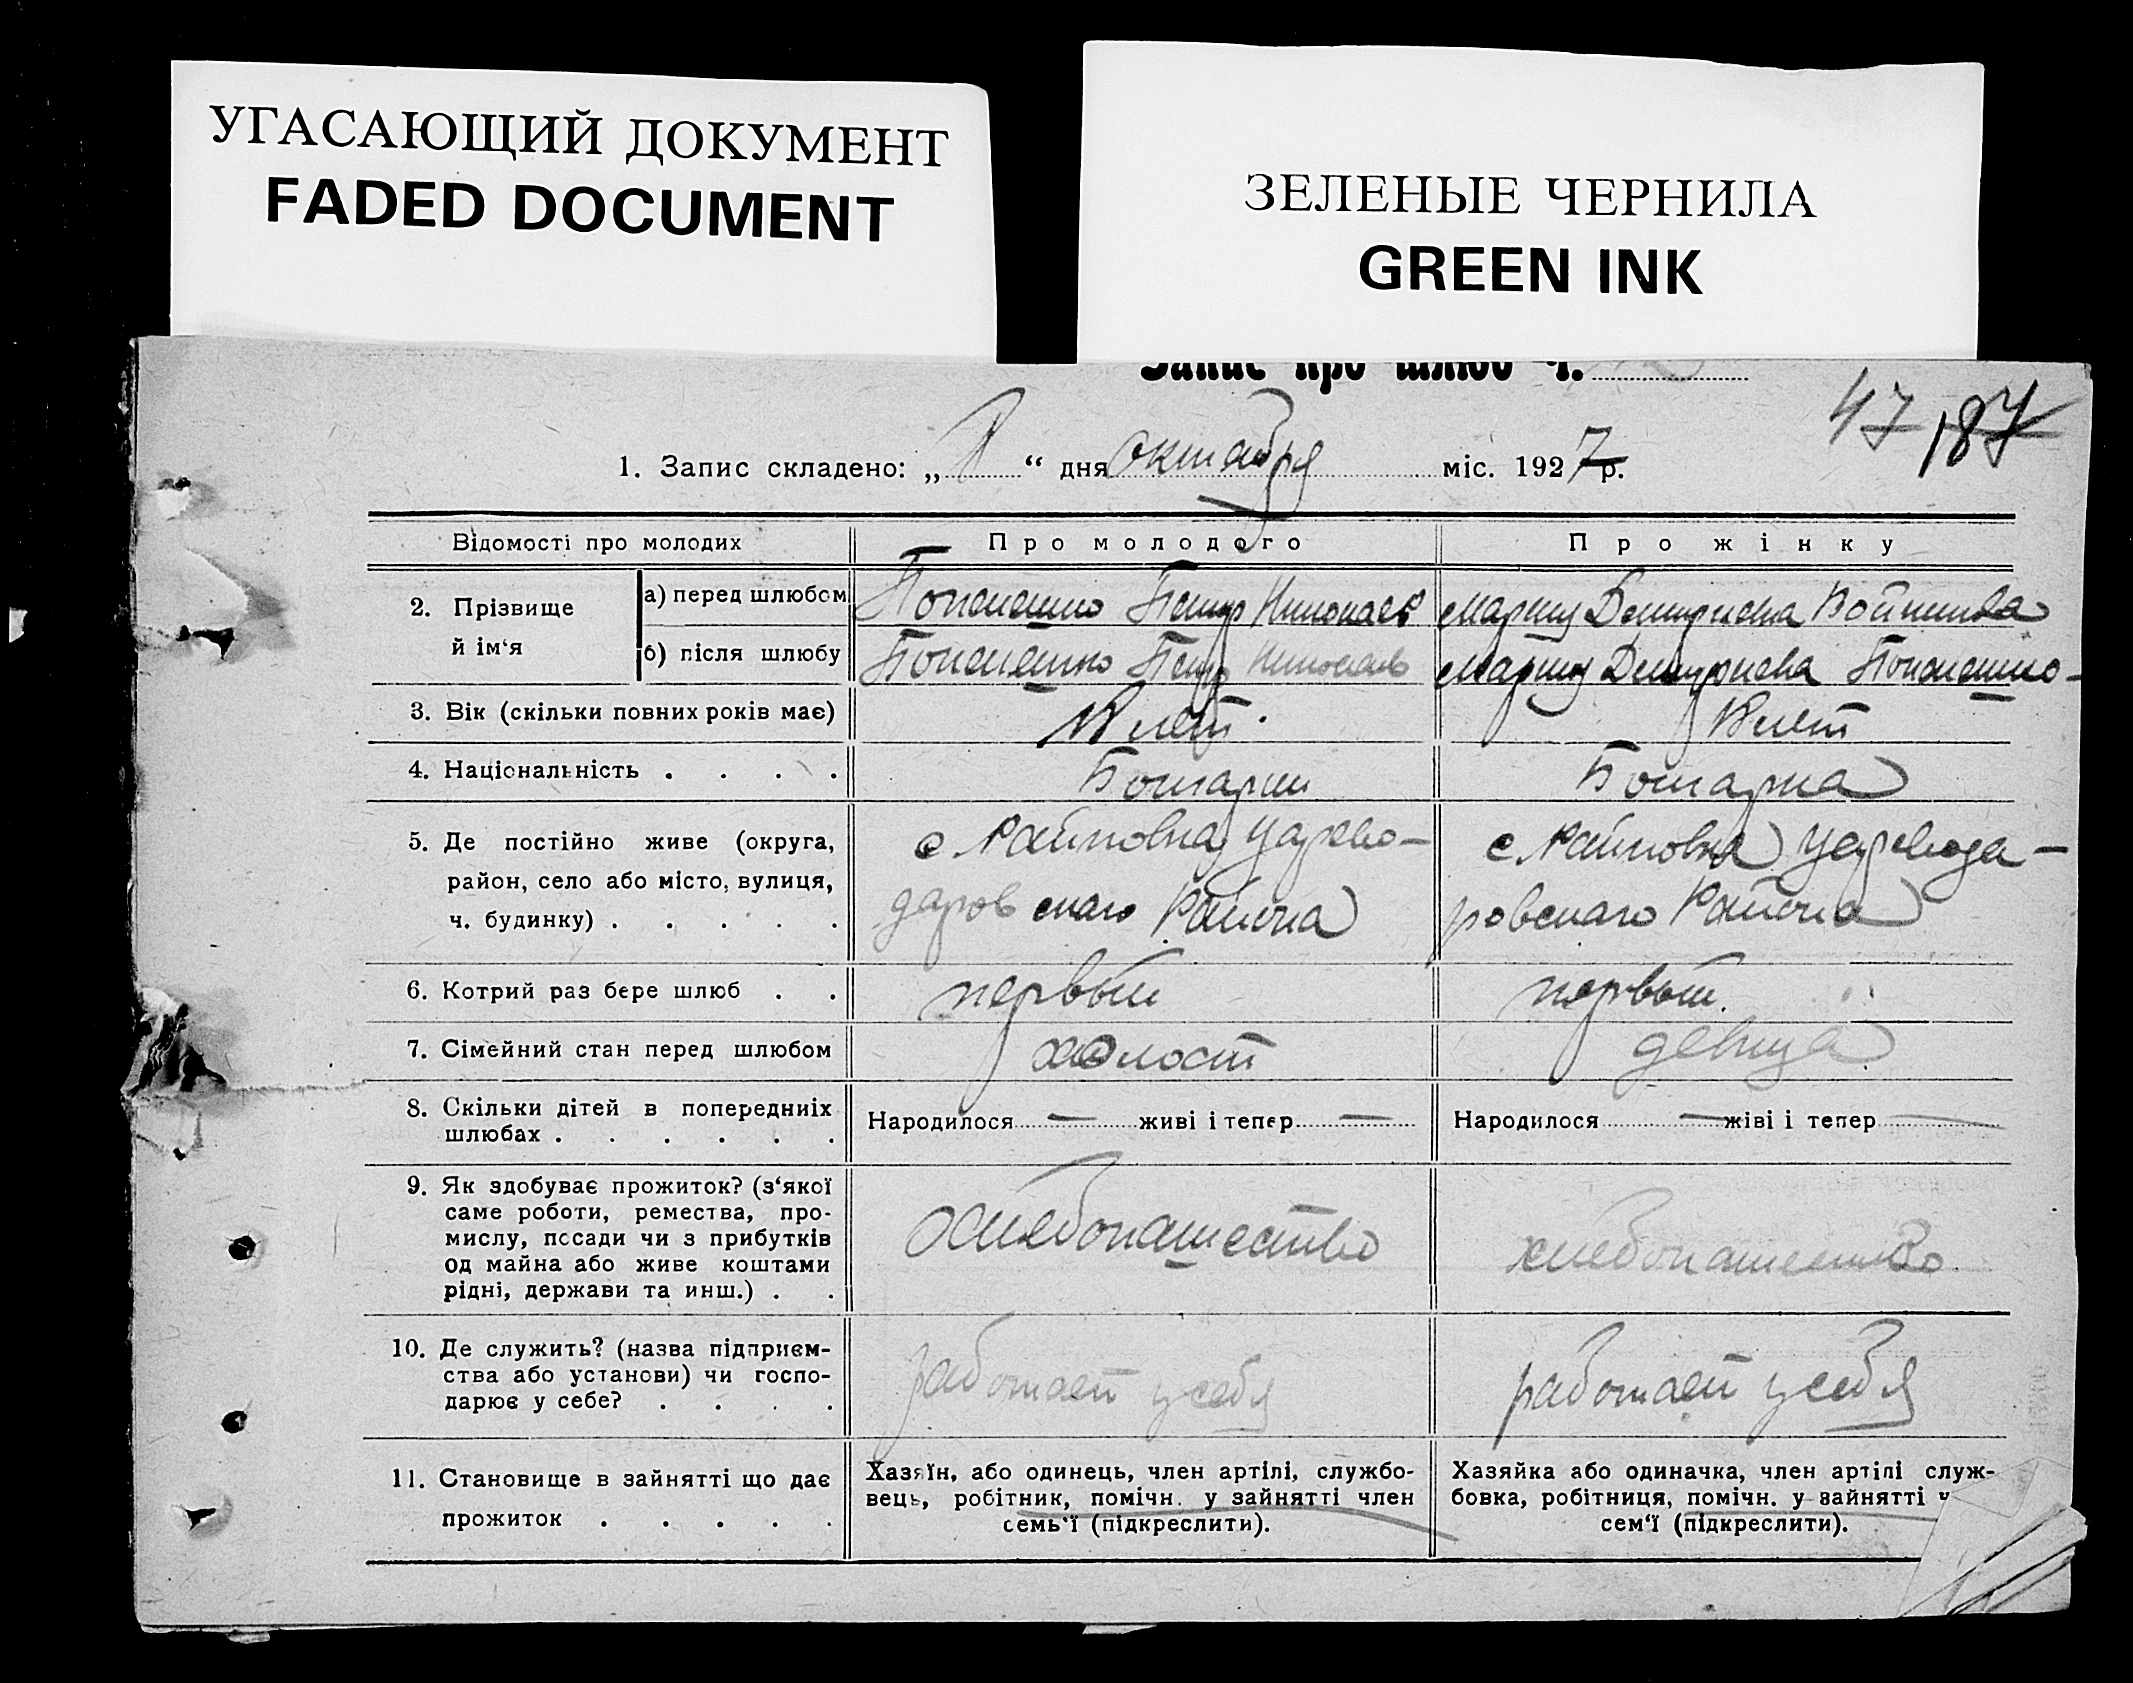 УГАСАЮЩИЙ ДОКУМЕНТ
FADED DOCUMENT
ЗЕЛЕНЫЕ ЧЕРНИЛА
GREEN INK
Запис про шлюб Ч.
47 187
1. Запис складено: „ “ дня октября міс. 1927 р.
Відомості про молодих
Про молодого
Про жінку
2. Прізвище й ім‘я
а) перед шлюбом
Петр Николаев
Демтриевна
б) після шлюбу
Петр Николаев
Демтриевна
3. Вік (скільки повних років має)
лет
лет
4. Національність . . . .
Болгарин
Болгарка
5. Де постійно живе (округа,
район, село або місто, вулиця,
ч. будинку) . . . . .
с Царево-
даровскаго Района
с Царевода-
ровскаго Района
6. Котрий раз бере шлюб . .
первый
первый.
7. Сімейний стан перед шлюбом
холост
девица
8. Скільки дітей в попередниіх
шлюбах . . . . . .
Народилося — живі і тепер —
Народилося — жіві і тепер —
9. Як здобуває прожиток? (з‘якої
саме роботи, ремества, про-
мислу, посади чи з прибутків
од майна або живе коштами
рідні, держави та инш.) . .
хлебопашество
хлебопашество
10. Де служить? (назва підприєм-
ства або установи) чи госпо-
дарює у себе? . . . .
работает у себя
работает у себя
11. Становище в зайнятті що дає
прожиток . . . . .
Хазяїн, або одинець, член артілі, службо-
вець, робітник, помічн. у зайнятті член
семь‘ї (підкреслити).
Хазяйка або одиначка, член артілі служ-
бовка, робітниця, помічн. у зайнятті
сем‘ї (підкреслити).